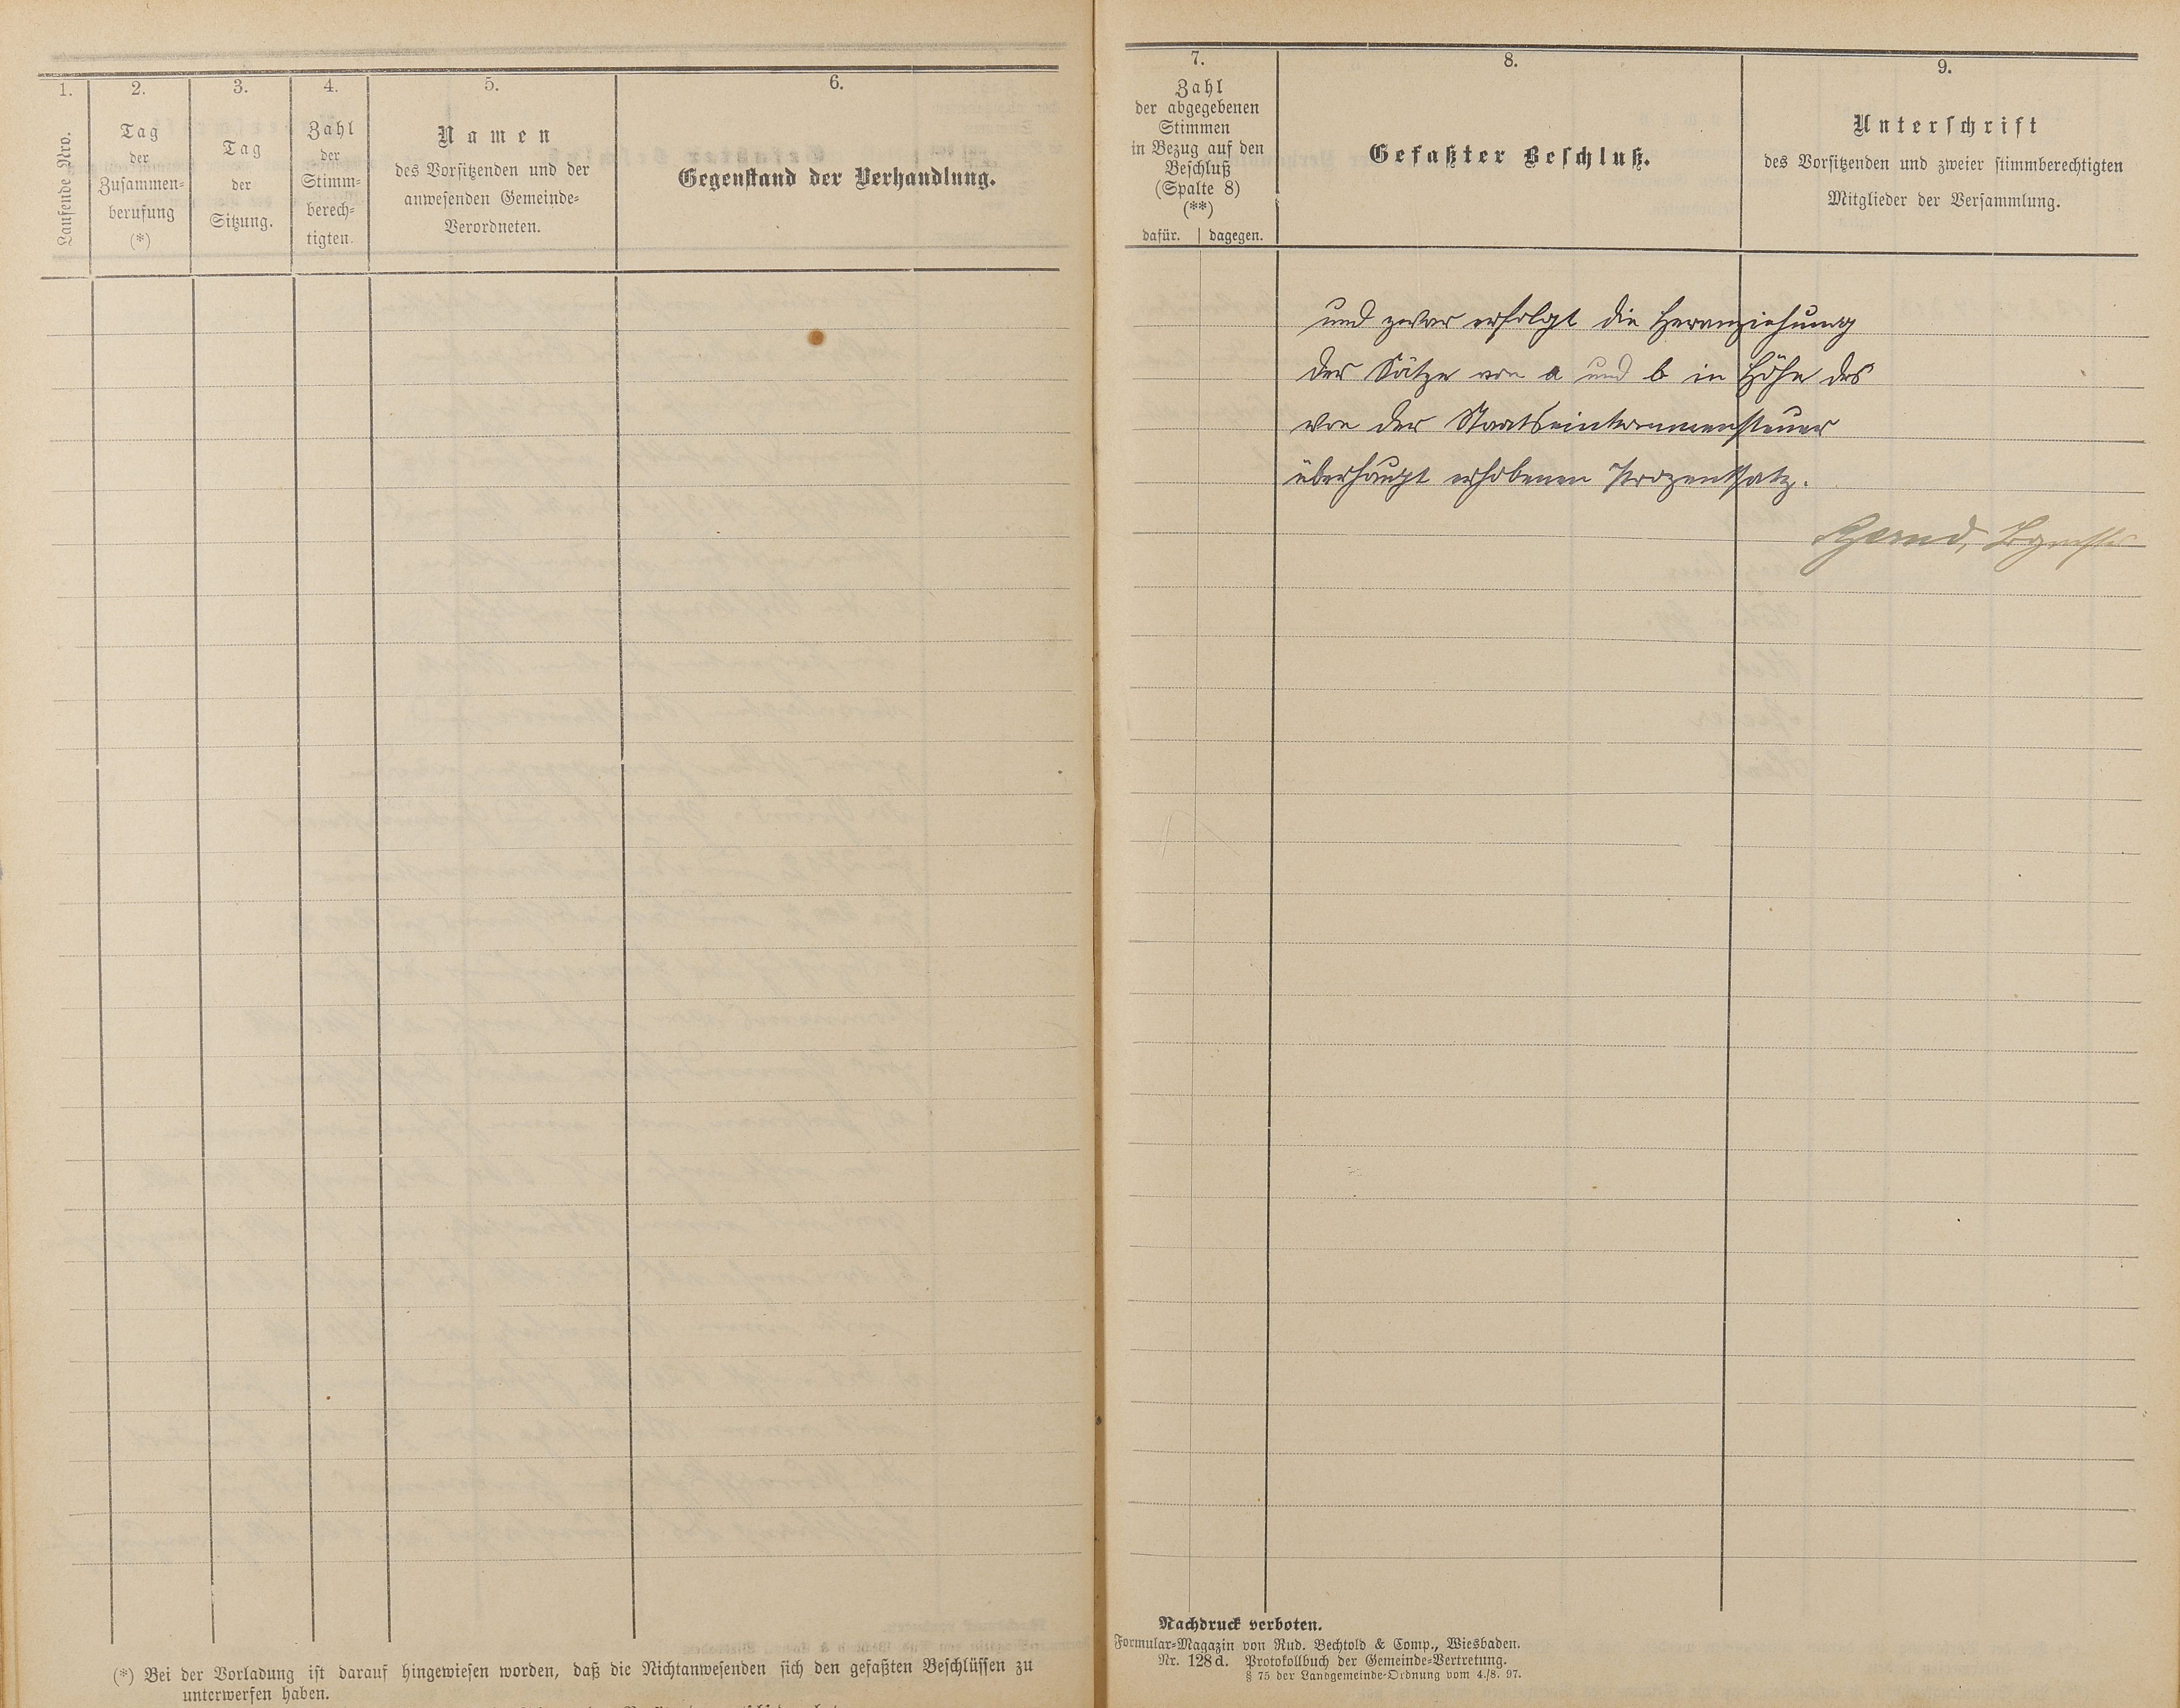 1.
Laufende Nro.
2.
Tag
der
Zusammen-
berufung
(*)
3.
Tag
der
Sitzung.
4.
Zahl
der
Stimm-
berech-
tigten.
5.
Namen
des Vorsitzenden und der
anwesenden Gemeinde-
Verordneten.
6.
Gegenstand der Verhandlung.
(*) Bei der Vorladung ist darauf hingewiesen worden, daß die Nichtanwesenden sich den gefaßten Beschlüssen zu
unterwerfen haben.
7.
Zahl
der abgegebenen
Stimmen
in Bezug auf den
Beschluß
(Spalte 8)
(**)
dafür. | dagegen.
8.
Gefaßter Beschluß.
9.
Unterschrift
des Vorsitzenden und zweier stimmberechtigten
Mitglieder der Versammlung.
und zwar erfolgt die Heranziehung
der Sätze von a und b in Höhe des
von der Staatseinkommensteuer
überhaupt erhobenen Prozentsatz.
Nachdruck verboten.
Formular-Magazin von Rud. Bechtold & Comp., Wiesbaden.
Nr. 128d. Protokollbuch der Gemeinde-Vertretung.
§ 75 der Landgemeinde-Ordnung vom 4./8. 97.